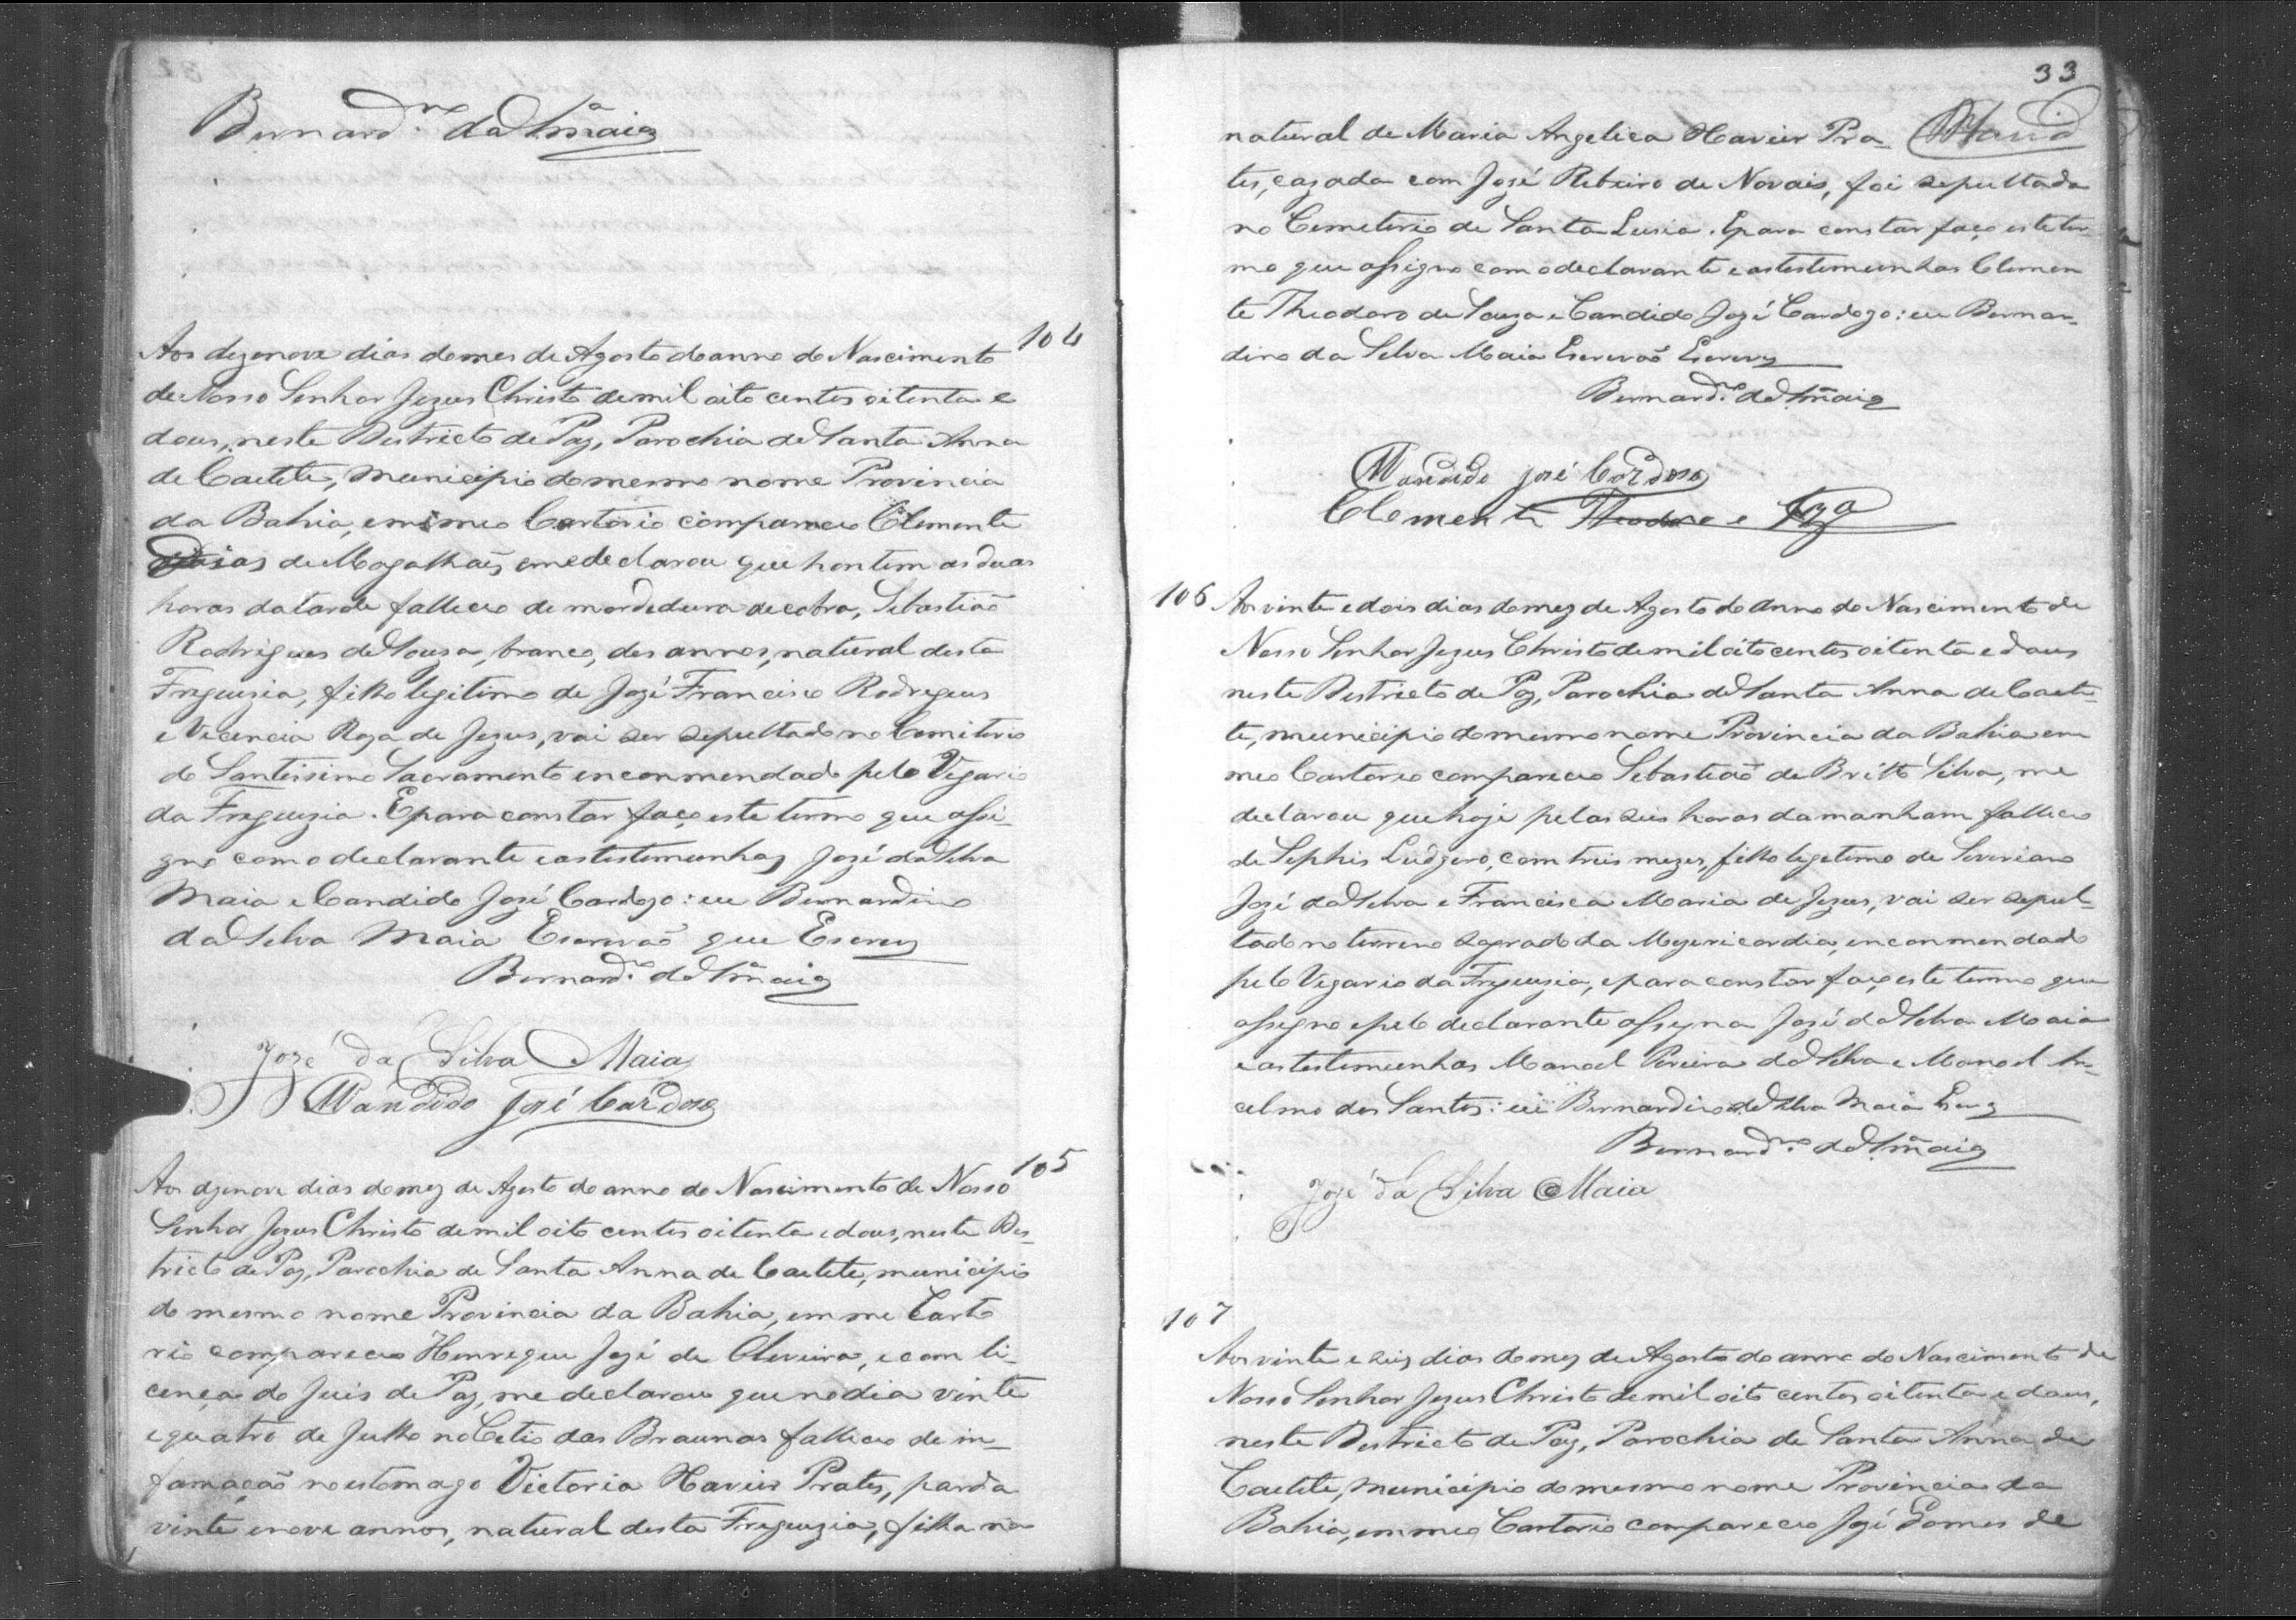 Bernard.no da S.a Maia
104
Aos dezenove dias do mes de Agosto do anno do Nascimento
de Nosso Senhor Jezus Christo de mil oito centos oitenta e
dous, neste Districto de Paz, Parochia de Santa Anna
de Caetité, municipio do mesmo nome Provincia
da Bahia, em meo Cartorio compareceo Clemente
Dias de Magalhaẽs e me declarou que hontem as duas
horas da tarde falleceo de mordedura de cobra, Sebastiaõ
Rodrigues de Sousa, branco, des annos, natural desta
Freguezia, filho legitimo de Jozé Francisco Rodrigues
e Vicencia Roza de Jezus, vai ser sepultado no Cemiterio
do Santissimo Sacramento enconmendado pelo Vigario
da Freguezia. E para constar faço este termo que assi-
gno com o declarante e as testemunhas Jozé da Silva
Maia e Candido José Cardozo: eu Bernardino
da Silva Maia Escrevaõ que Escrevy
Bernard.no da S.a Maia
Jozé da Silva Maia
Candido José Cardoso
105
Aos dzenove dias do mez de Agosto do anno do Nascimento de Nosso
Senhor Jezus Christo de mil oito centos oitenta e dous, neste Des-
tricto de Paz, Parochia de Santa Anna de Caetite, municipio
do mesmo nome Provincia da Bahia, em me Carto
rio compareceo Henrique Jozé de Oliveira, e com li-
cença do Juis de Paz, me declarou que no dia vinte
e quatro de Julho no Cetio das Braunas falleceo de in-
famação no estomago Victoria Xavier Prates, parda
vinte e nove annos, natural desta Freguezia, filha na
33
Maia
natural de Maria Angelica Xavier Pra-
tes, cazada com José Ribeiro de Novais, foi sepultada
no Cemeterio de Santa Lusia. E para constar faço este ter-
mo que assigno com o declarante e as testemunhas Clemen
te Theodoro de Souza e Candido Jozé Cardozo: eu Bernar-
dino da Silva Maia Escrevaõ Escrevy
Bernard.no da S.a Maia
Candido José Cardoso
Clemente Theodoro e
106
Aos vinte e dois dias do mez de Agosto do anno do Nascimento de
Nosso Senhor Jezus Christo de mil oito centos oitenta e dous
neste Districto de Paz, Parochia de Santa Anna de Caeti-
te, municipio do mesmo nome Provincia da Bahia em
meo Cartorio compareceo Sebastiaõ de Britto Silva, me
declarou que hoje pelas seis horas da manham falleceo
de Sephis Ludgero, com treis mezes, filho legetimo de Severiano
Jozé da Silva e Francisca Maria de Jezus, vai ser sepul-
tado no terreno sagrado da Mizericordia, enconmendado
pelo Vigario da Freguezia, e para constar faço este termo que
assigno e pelo declarante assigna Jozé da Silva Maia
e as testemunhas Manoel Pereira da Silva e Manoel An-
celmo dos Santos: eu Bernardino da Silva Maia Escrevy
Bernard.no da S.a Maia
Jozé da Silva Maia
107
Aos vinte e seis dias do mez de Agosto do anno do Nascimento de
Nosso Senhor Jezus Christo de mil oito centos oitenta e dous,
neste Districto de Paz, Parochia de Santa Anna de
Caetite, municipio do mesmo nome Provincia da
Bahia, em meo Cartorio compareceo Jozé Gomes de